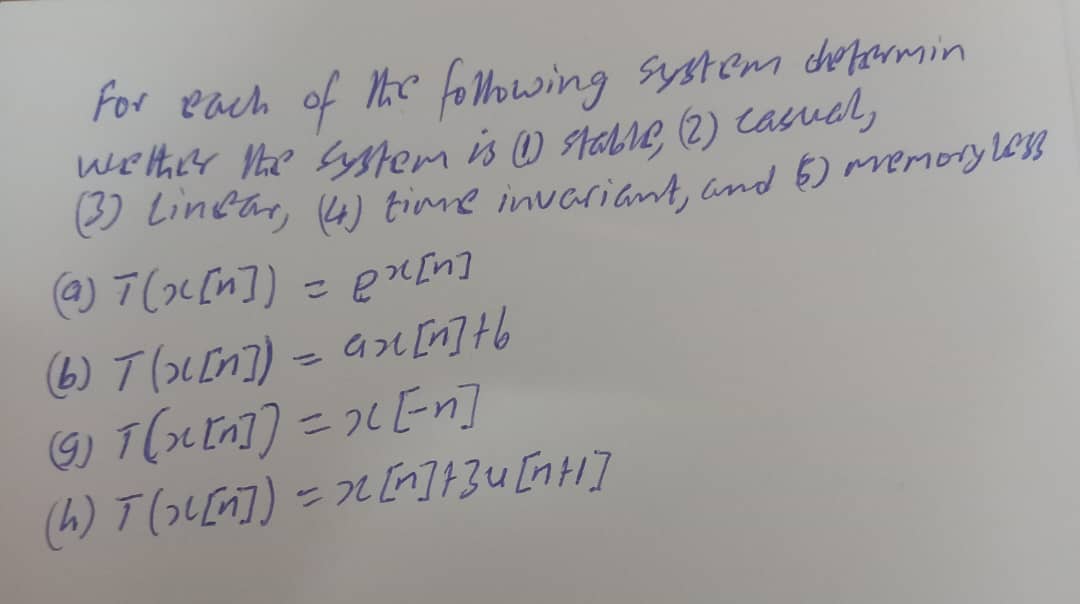 For each of the following system determin
wether the system is (1) stable, (2) casual,
(3) Linear, (4) time invariant, and 5) memoryless
(a) T(x[n]) = e^x[n]
(b) T(x[n]) = ax[n]+b
(g) T(x[n]) = x[-n]
(h) T(x[n]) = x[n]+3u[n+1]